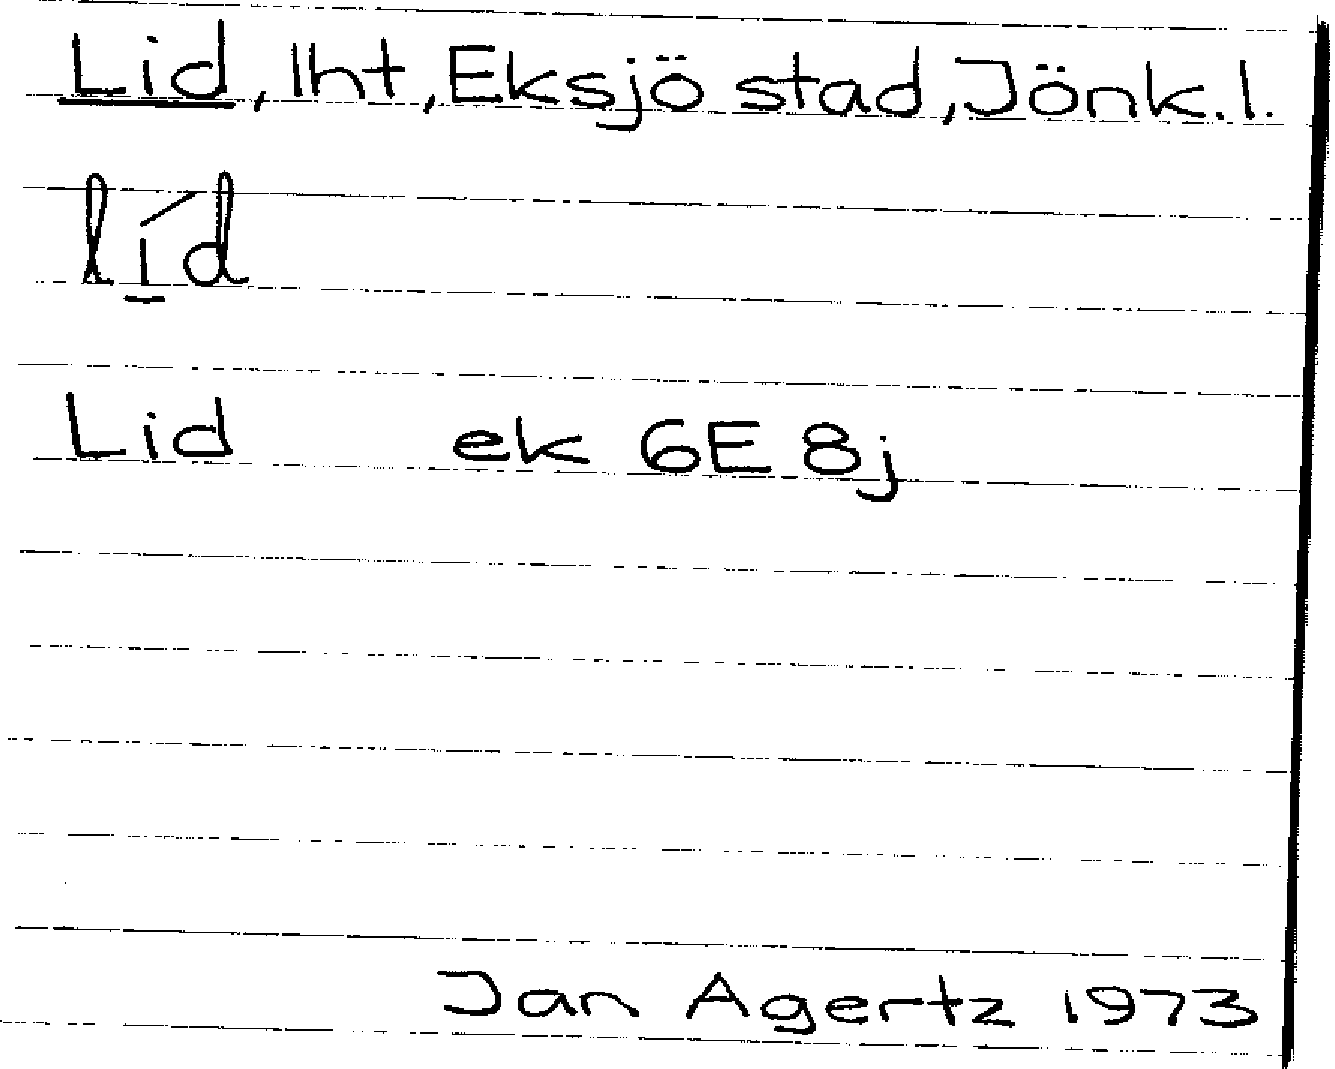 Lid, lht, Eksjö stad, Jönk.l.
lí̱d
Lid ek 6E 8j
Jan Agertz 1973